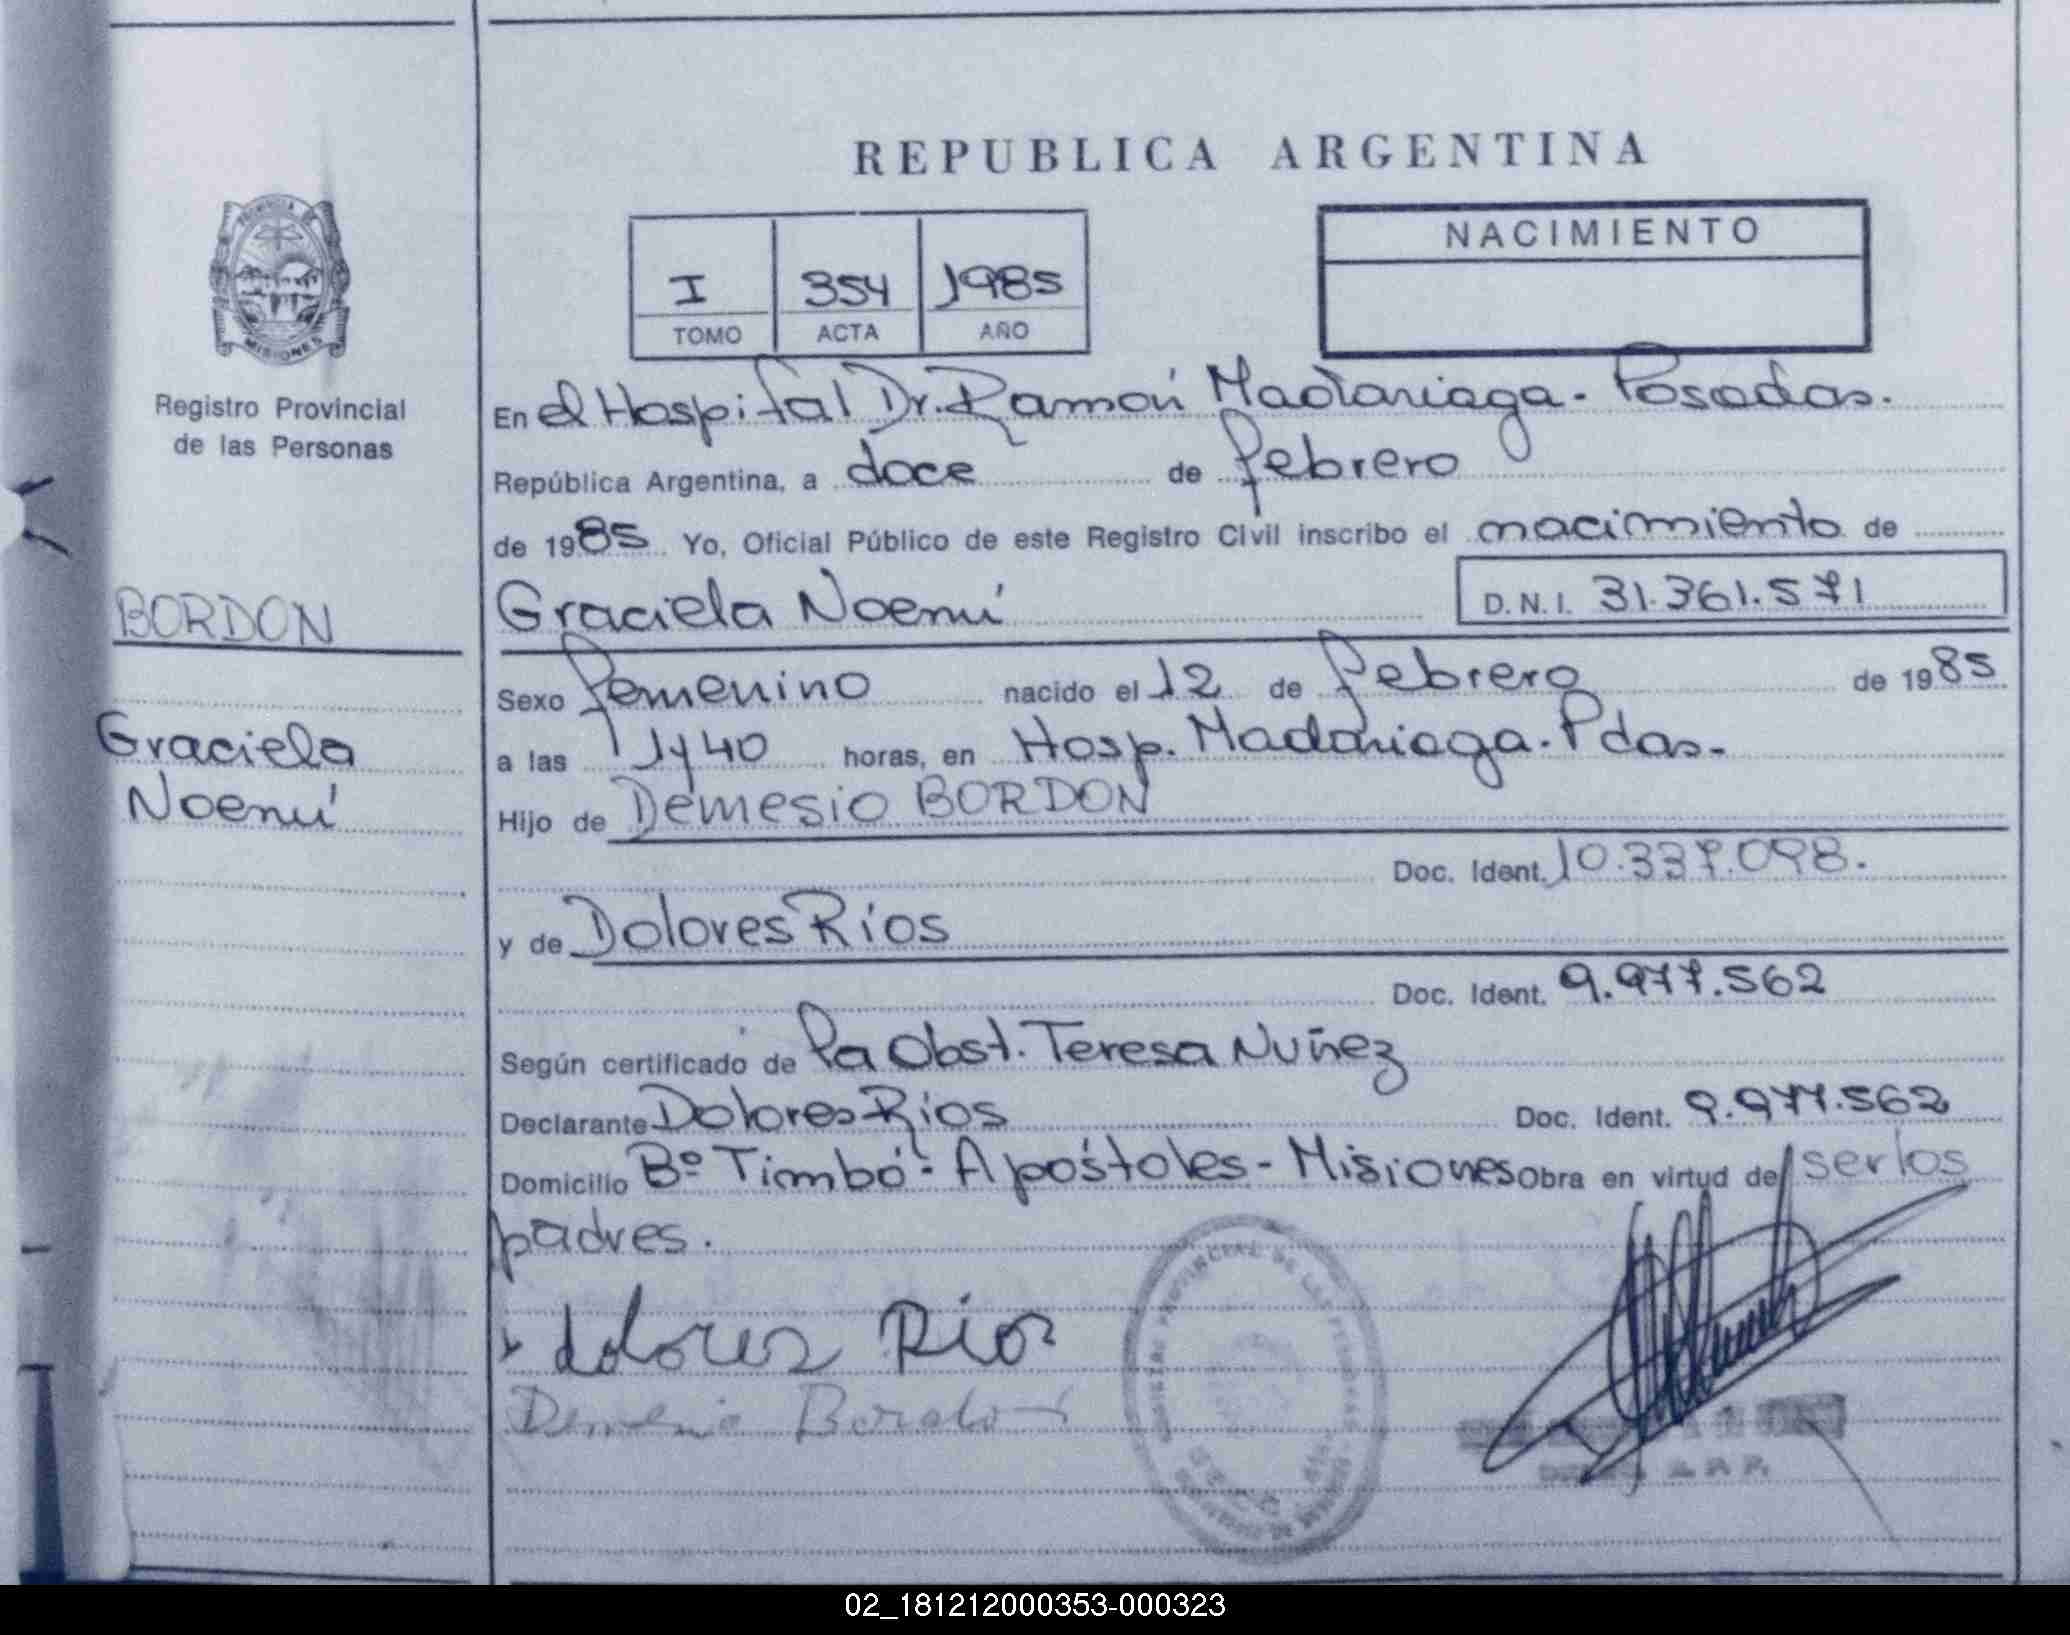 REPUBLICA ARGENTINA
PROVINCIA DE
MISIONES
Registro Provincial
de las Personas
BORDON
Graciela
Noemí
I 354 1985
TOMO ACTA AÑO
NACIMIENTO
En el Hospital Dr. Ramón Madariaga - Posadas.
República Argentina, a doce de febrero
de 1985 Yo, Oficial Público de este Registro Civil inscribo el nacimiento de
Graciela Noemí D.N.I. 31.361.571
Sexo femenino nacido el 12 de febrero de 1985
a las 1y40 horas, en Hosp. Madariaga - Pdas -
Hijo de Demesio BORDON
Doc. Ident. 10.337.098.
y de Dolores Ríos
Doc. Ident. 9.977.562
Según certificado de la Obst. Teresa Nuñez
Declarante Dolores Ríos Doc. Ident. 9.977.562
Domicilio Bº Timbó - Apóstoles - Misiones Obra en virtud de ser los
padres.
dolores Rios
Demesio Bordon
PROVINCIAL DE LAS PERSONAS
02_181212000353-000323